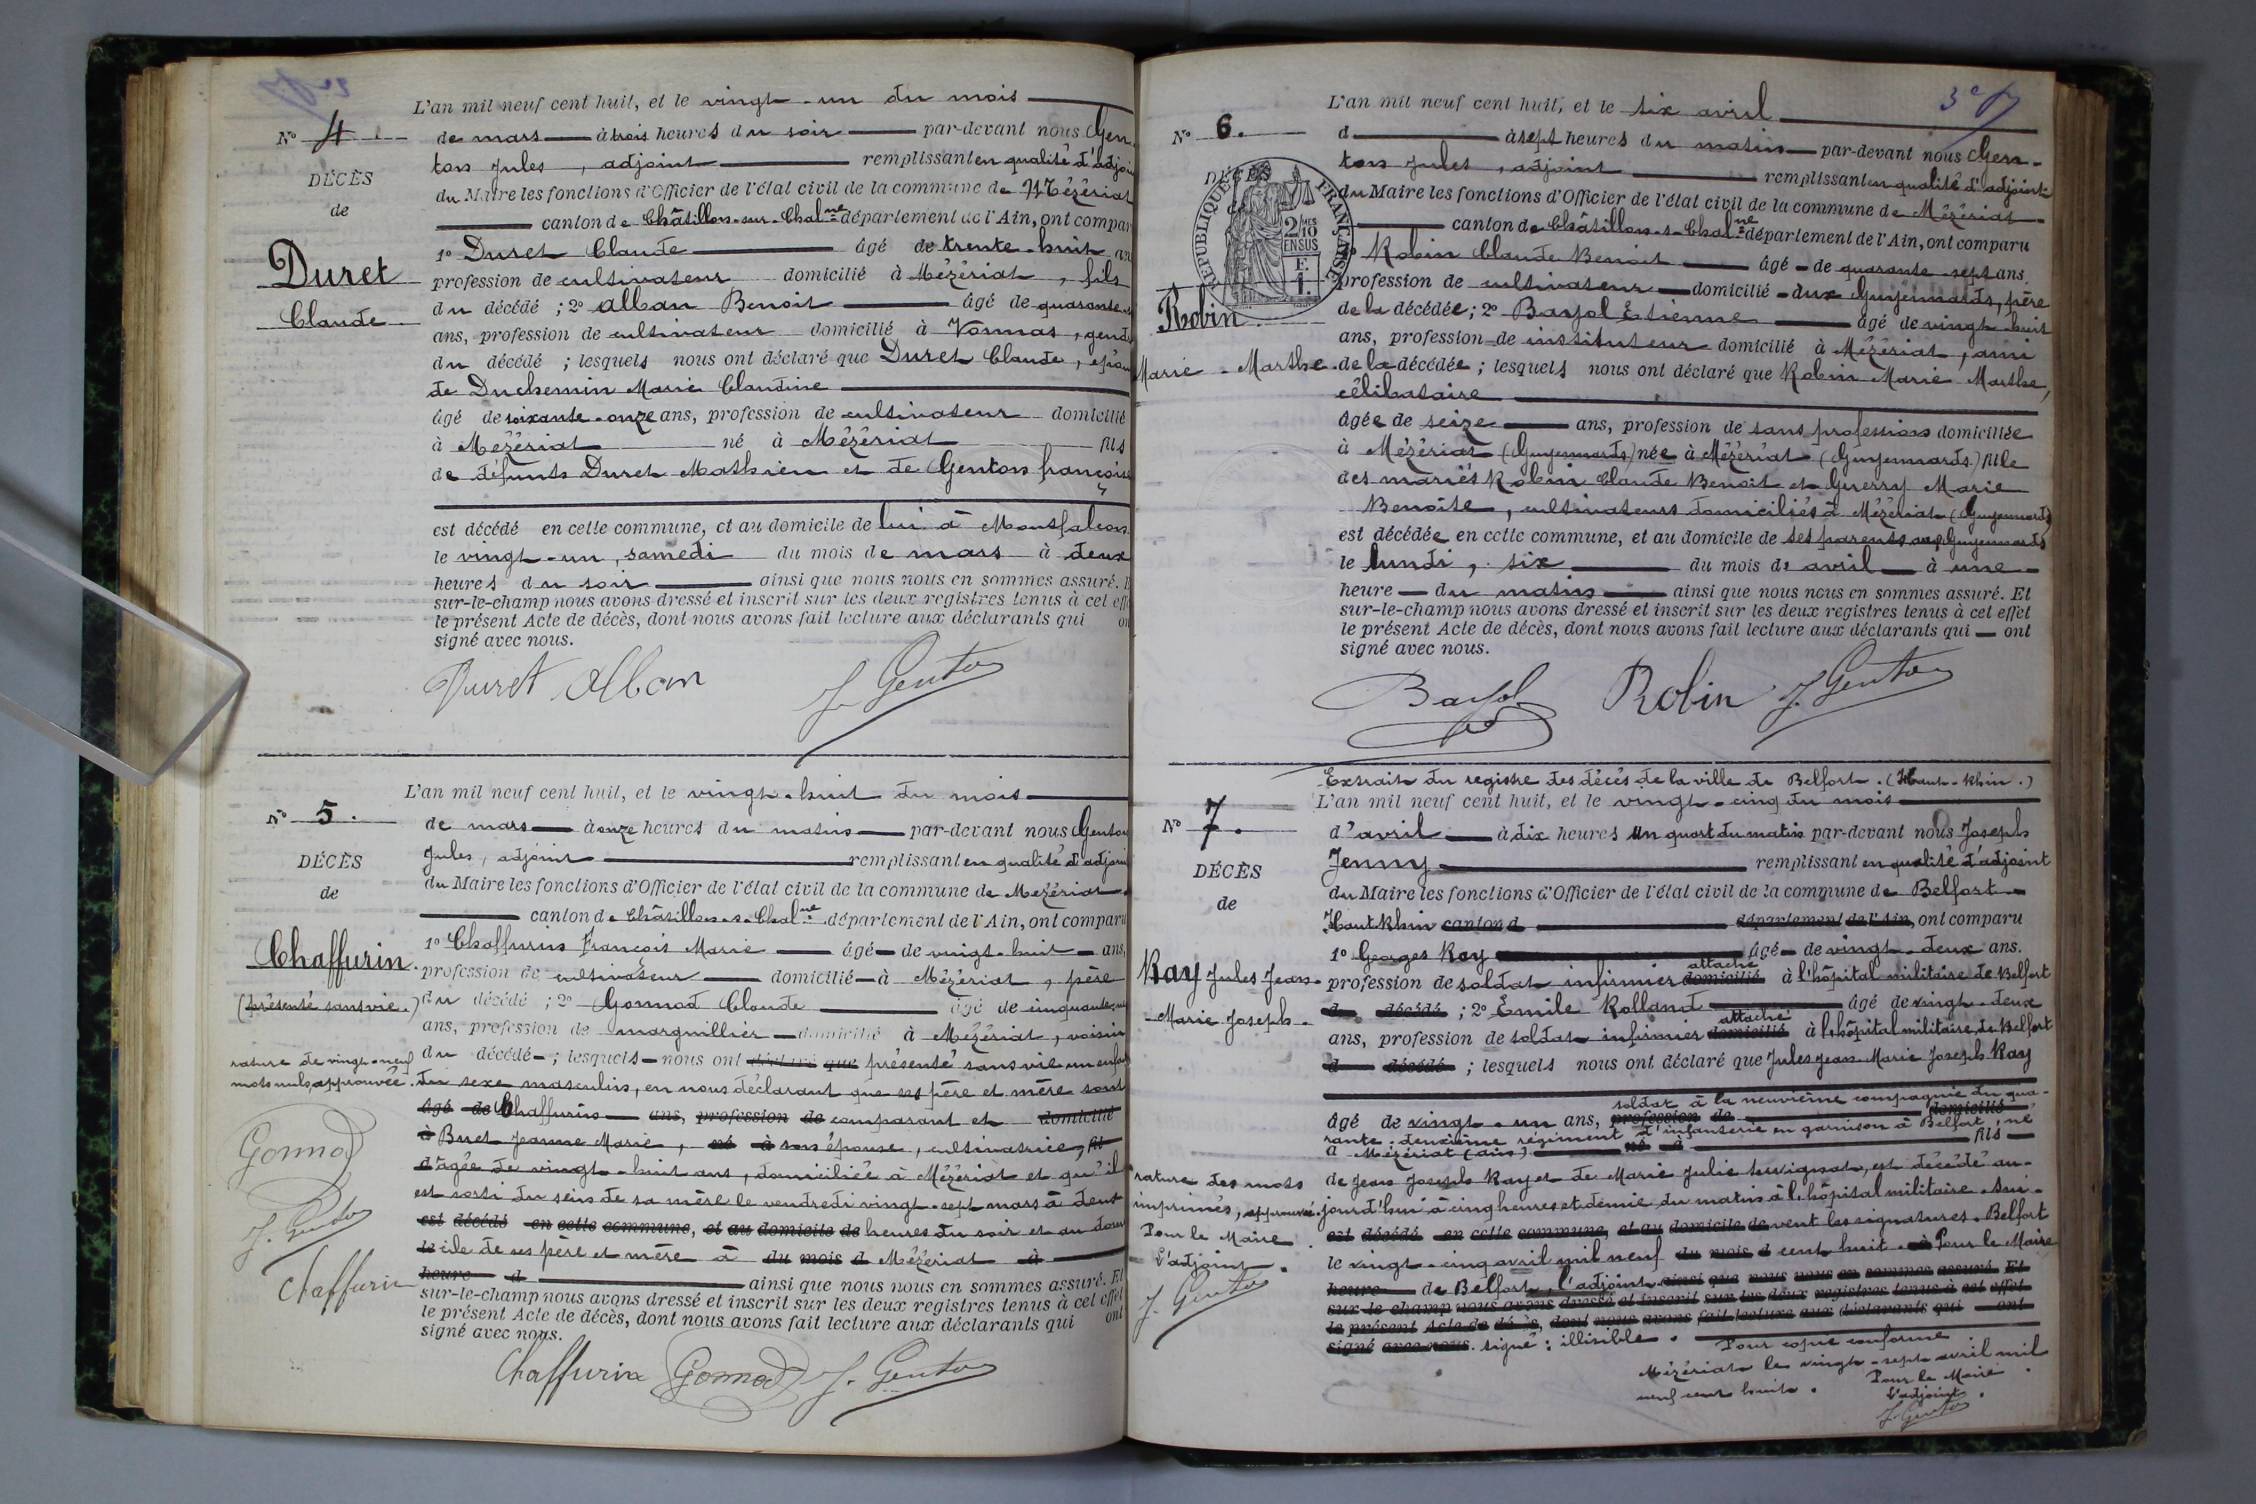 L'an mil neuf cent huit, et le vingt-un du mois
N° 4
de mars à trois heures du soir par-devant nous Gen-
ton Jules, adjoint remplissant en qualité d'adjoin
DÉCÈS
du Maire les fonctions d'Officier de l'état civil de la commune de Mézériat
de
canton de Châtillon-sur-Chalne département de l'Ain, ont compar
1° Duret Claude âgé de trente-huit an
Duret
profession de cultivateur domicilié à Mézériat, fils
du décédé ; 2° Alban Benoit âgé de quarante
Claude
ans, profession de cultivateur domicilié à Vonnas, gend
du décédé ; lesquels nous ont déclaré que Duret Claude, épou
de Duchemin Marie Claudine
âgé de soixante-onze ans, profession de cultivateur domicilié
à Mézériat né à Mézériat fils
de défunts Duret Mathieu et de Genton françoise
est décédé en cette commune, et au domicile de lui à Montfalcon
le vingt-un, samedi du mois de mars à deux
heures du soir ainsi que nous nous en sommes assuré.
sur-le-champ nous avons dressé et inscrit sur les deux registres tenus à cet eff
le présent Acte de décès, dont nous avons fait lecture aux déclarants qui on
signé avec nous.
Duret Alban J. Genton
L'an mil neuf cent huit, et le vingt-huit du mois
N° 5.
de mars à onze heures du matin par-devant nous Genton
Jules, adjoint remplissant en qualité d'adjoin
DÉCÈS
du Maire les fonctions d'Officier de l'état civil de la commune de Mézériat
de
canton de Châtillon-s-Chalne département de l'Ain, ont comparu
1° Chaffurin François Marie âgé de vingt-huit ans,
Chaffurin
profession de cultivateur domicilié à Mézériat, père
(présenté sans vie.)
du décédé ; 2° Gonnod Claude âgé de cinquante
ans, profession de marguillier domicilié à Mézériat, voisin
du décédé ; lesquels nous ont déclaré que présenté sans vie un enfan
rature de vingt-neuf
mots nuls, approuvée.
du sexe masculin, en nous déclarant que ses père et mère sont
âgé de Chaffurin ans, profession de comparant et domicilié
à Buet Jeanne Marie, né à son épouse, cultivatrice, fil
d'âgée de vingt-huit ans, domiciliée à Mézériat et qu'il
est sorti du sein de sa mère le vendredi vingt-sept mars à deux
est décédé en cette commune, et au domicile de heures du soir et au domi
le cile de ses père et mère à du mois d Mézériat à
heure d ainsi que nous nous en sommes assuré. Et
sur-le-champ nous avons dressé et inscrit sur les deux registres tenus à cet effet
le présent Acte de décès, dont nous avons fait lecture aux déclarants qui ont
signé avec nous.
Gonnod
J. Genton
Chaffurin
Chaffurin Gonnod J. Genton
3e
L'an mil neuf cent huit, et le six avril
N° 6.
d à sept heures du matin par-devant nous Gen-
ton Jules, adjoint remplissant en qualité d'adjoint
DÉCÈS
du Maire les fonctions d'Officier de l'état civil de la commune de Mézériat
RÉPUBLIQUE FRANÇAISE
2/10 MES EN SUS
F.
1.
canton de Châtillon-s-Chalne département de l'Ain, ont comparu
1° Robin Claude Benoit âgé de quarante-sept ans
profession de cultivateur domicilié aux Guyennards, père
Robin
de la décédée ; 2° Bayol Etienne âgé de vingt-huit
ans, profession de instituteur domicilié à Mézériat, ami
Marie-Marthe
de la décédée ; lesquels nous ont déclaré que Robin Marie Marthe,
célibataire
âgée de seize ans, profession de sans profession domiciliée
à Mézériat (Guyennards) née à Mézériat (Guyennards) fille
des mariés Robin Claude Benoit et Guerry Marie
Benoîte, cultivateurs domiciliés à Mézériat (Guyennards)
est décédée en cette commune, et au domicile de ses parents aux Guyennards
le lundi, six du mois de avril à une
heure du matin ainsi que nous nous en sommes assuré. Et
sur-le-champ nous avons dressé et inscrit sur les deux registres tenus à cet effet
le présent Acte de décès, dont nous avons fait lecture aux déclarants qui ont
signé avec nous.
Bayol Robin J. Genton
Extrait du registre des décès de la ville de Belfort. (Haut-Rhin.)
L'an mil neuf cent huit, et le vingt-cinq du mois
N° 7.
d'avril à dix heures un quart du matin par-devant nous Joseph
Jenny remplissant en qualité d'adjoint
DÉCÈS
du Maire les fonctions d'Officier de l'état civil de la commune de Belfort
de
Haut Rhin canton d département de l'Ain, ont comparu
1° Georges Ray âgé de vingt-deux ans.
Ray Jules Jean-
Marie Joseph.
attaché
profession de soldat infirmier domicilié à l'hôpital militaire de Belfort
d décédé ; 2° Émile Rolland âgé de vingt-deux
attaché
ans, profession de soldat infirmier domicilié à l'hôpital militaire de Belfort
d décédé ; lesquels nous ont déclaré que Jules Jean-Marie Joseph Ray
soldat à la neuvième compagnie du qua-
âgé de vingt-un ans, profession de domicilié
rante-deuxième régiment d'infanterie en garnison à Belfort, né
à Mézériat (Ain) né à fils
de Jean Joseph Ray et de Marie Julie, est décédé au-
rature des mots
imprimés, approuvée.
Pour le Maire
L'adjoint.
J. Genton
jourd'hui à cinq heures et demie du matin à l'hôpital militaire. Sui-
est décédé en cette commune, et au domicile de vent les signatures. Belfort
le vingt-cinq avril mil neuf du mois d cent huit. à Pour le Maire
heure de Belfort, l'adjoint ainsi que nous nous en sommes assuré. Et
sur-le-champ nous avons dressé et inscrit sur les deux registres tenus à cet effet
le présent Acte de décès, dont nous avons fait lecture aux déclarants qui ont
signé avec nous. signé : illisible.
Pour copie conforme
Mézériat le vingt-sept avril mil
neuf cent huit.
Pour le Maire
L'adjoint.
J. Genton